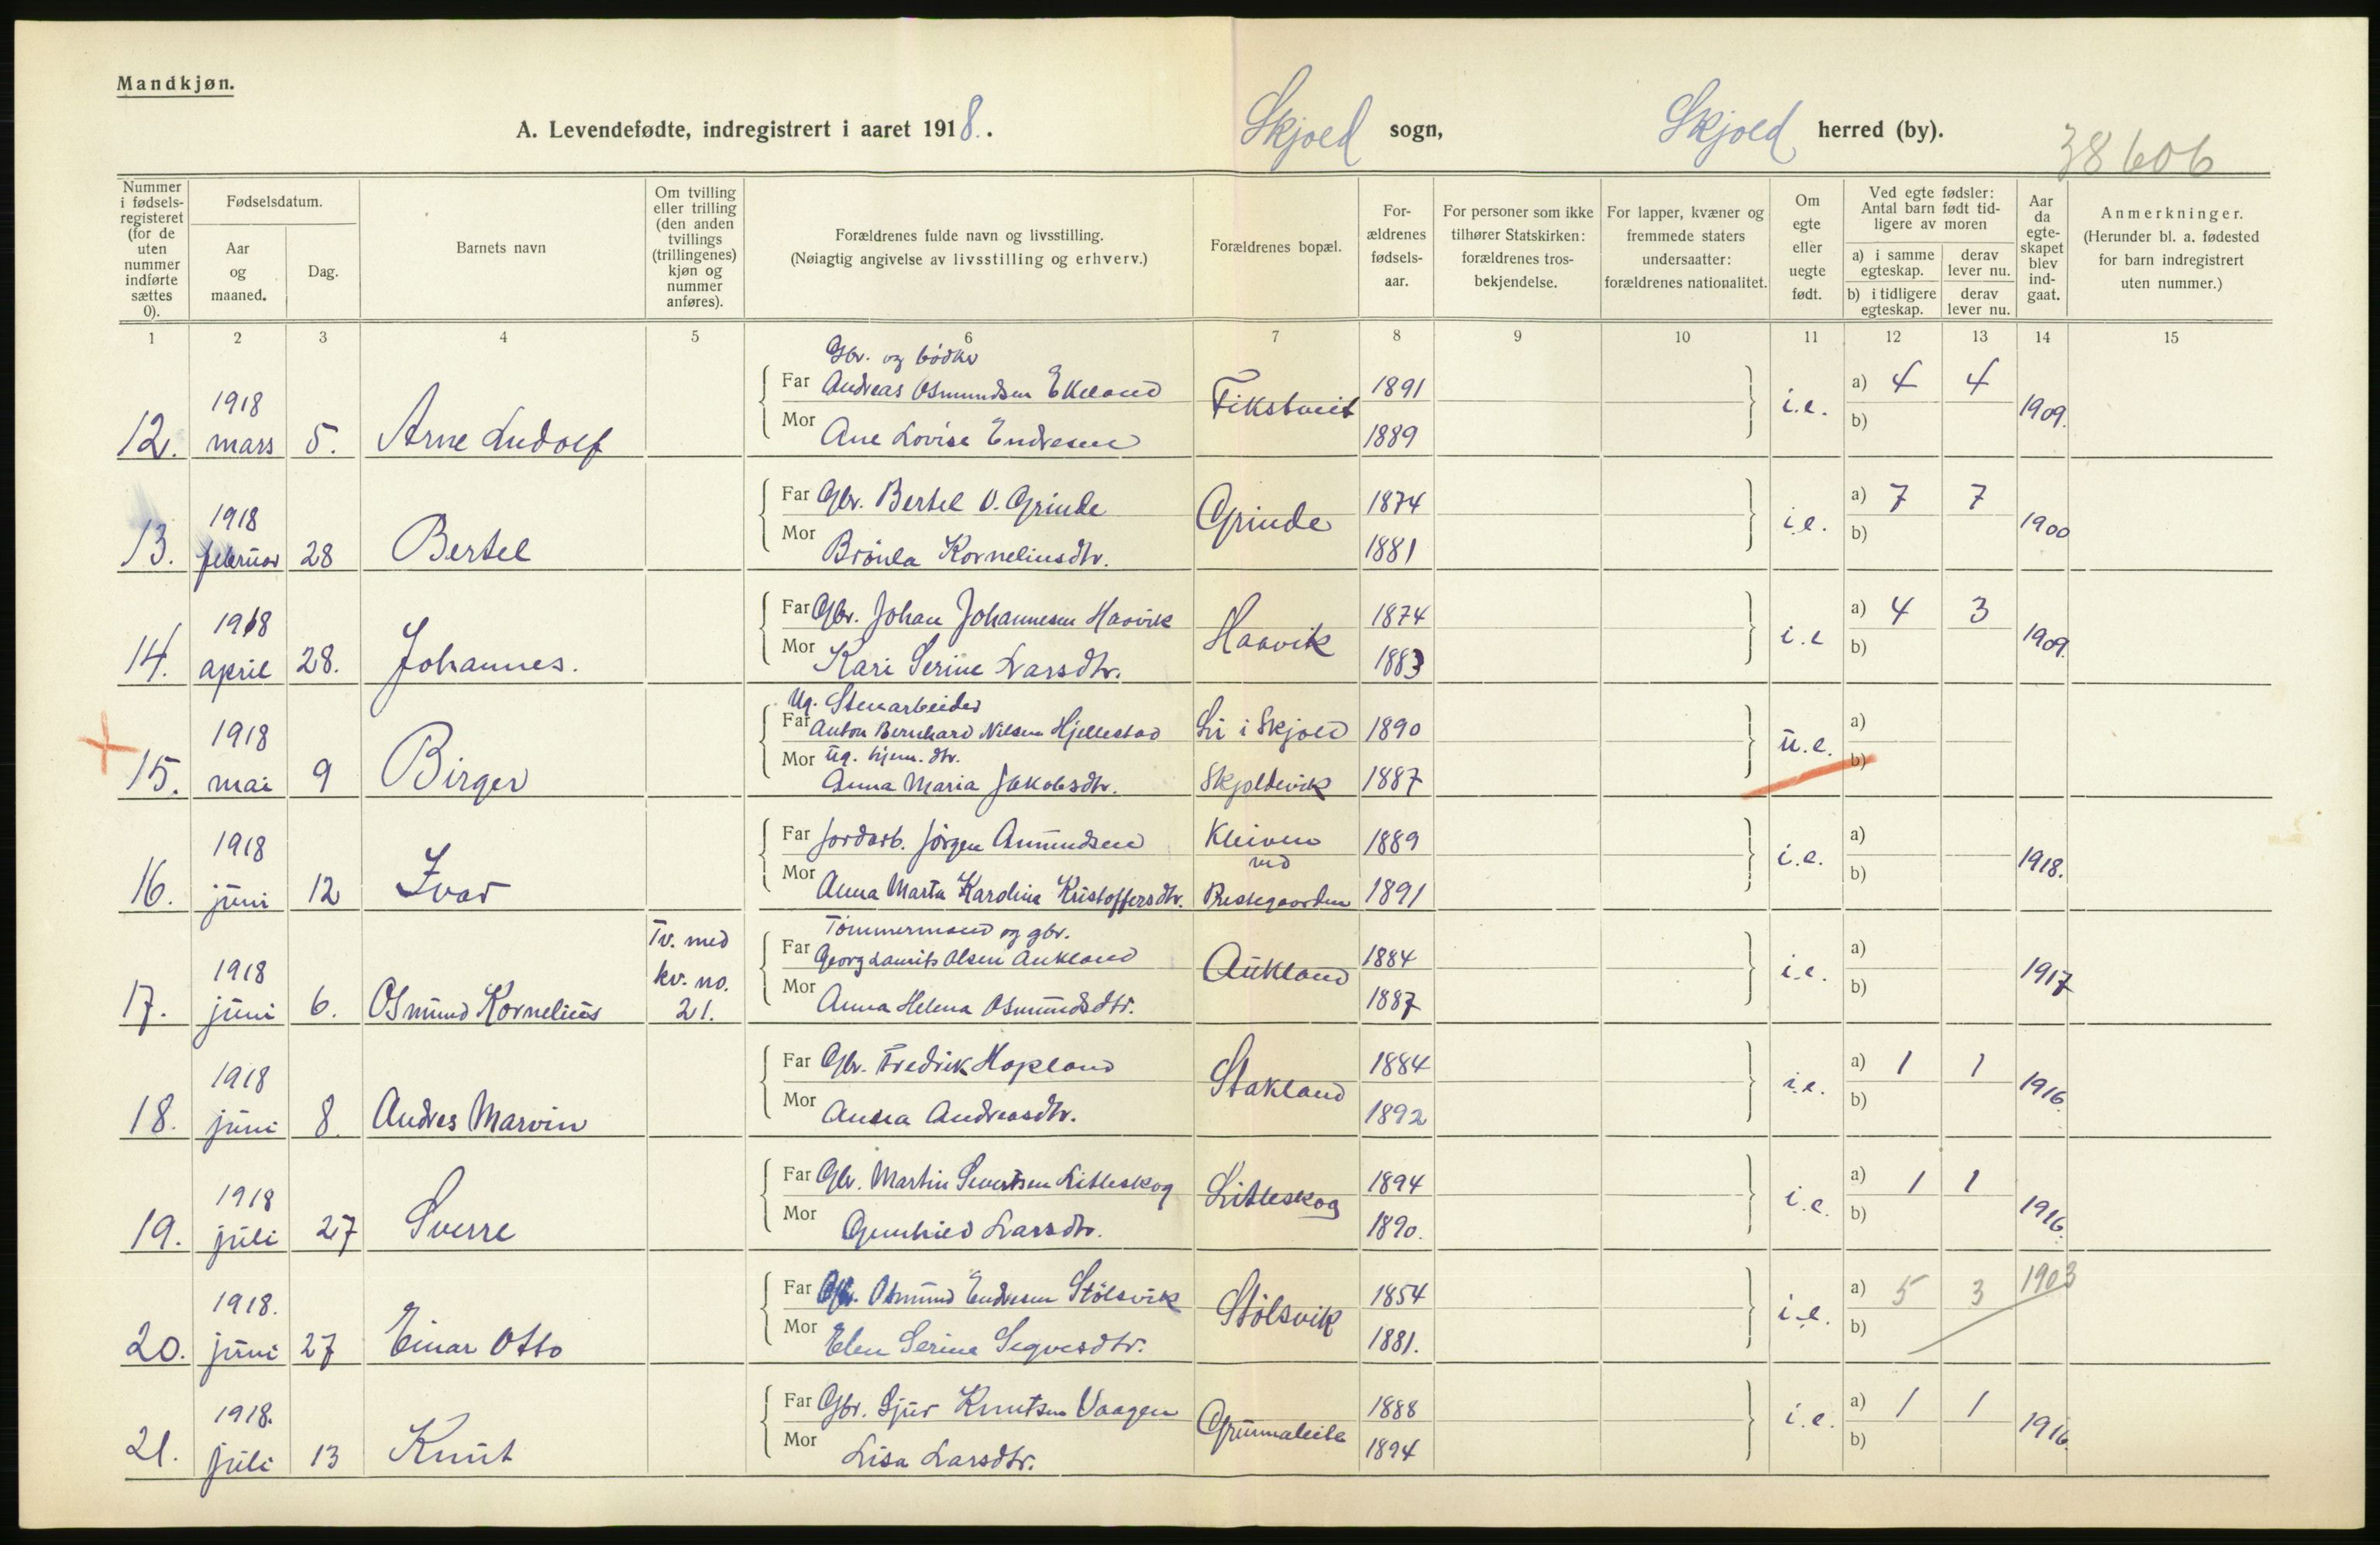 Mandkjøn.
A. Levendefødte, indregistrert i aaret 1918.. Skjold sogn, Skjold herred (by). 38606
Nummer i fødselsregisteret (for de uten nummer indførte sættes 0).
Fødselsdatum.
Aar og maaned.
Dag.
Barnets navn
Om tvilling eller trilling (den anden tvillings (trillingenes) kjøn og nummer anføres).
Forældrenes fulde navn og livsstilling.
(Nøiagtig angivelse av livsstilling og erhverv.)
Forældrenes bopæl.
Forældrenes fødselsaar.
For personer som ikke tilhører Statskirken: forældrenes trosbekjendelse.
For lapper, kvæner og fremmede staters undersaatter: forældrenes nationalitet.
Om egte eller uegte født.
Ved egte fødsler: Antal barn født tidligere av moren
a) i samme egteskap.
derav lever nu.
b) i tidligere egteskap.
derav lever nu.
Aar da egteskapet blev indgaat.
Anmerkninger.
(Herunder bl. a. fødested for barn indregistrert uten nummer.)
1 2 3 4 5 6 7 8 9 10 11 12 13 14 15
Gbr. og bødker
12. 1918 mars 5. Arne Ludolf Far Andreas Osmundsen Ekeland Fikstveit 1891 i.e. a) 4 4 1909.
Mor Ane Lovise Endresen 1889 b)
13. 1918 februar 28 Bertel Far Gbr. Bertel O. Grinde Grinde 1874 i.e. a) 7 7 1900
Mor Brønla Korneliusdtr. 1881 b)
14. 1918 april 28. Johannes. Far Gbr. Johan Johannesen Haavik Haavik 1874 i.e a) 4 3 1909.
Mor Kari Serine Larsdtr. 1883 b)
Ug. Stenarbeider
15. 1918 mai 9 Birger Far Anton Bernhard Nilsen Hjellestad Li i Skjold 1890 u.e. a)
Mor ug. hjem. dtr.
Anna Maria Jakobsdtr. Skjoldevik 1887 b)
16. 1918 juni 12 Ivar Far Jordarb. Jørgen Amundsen Kleiven 1889 i.e. a) 1918.
ved
Mor Anna Marta Karoline Kristoffersdtr. Prestegaarden 1891 b)
Tømmermand og gbr.
17. 1918 juni 6. Osmund Kornelius Tv. med kv. no. 21. Far Georg Laurits Olsen Aukland Aukland 1884 i.e. a) 1917
Mor Anna Helena Osmundsdtr. 1887 b)
18. 1918 juni 8. Andres Marvin Far Gbr. Fredrik Hapland Stakland 1884 i.e. a) 1 1 1916.
Mor Anna Andreasdtr. 1892 b)
19. 1918 juli 27 Sverre Far Gbr. Martin Sivertsen Litleskog Litleskog 1894 i.e. a) 1 1 1916.
Mor Gunhild Larsdtr. 1890. b)
20. 1918. juni 27 Einar Otto Far Gbr. Osmund Endresen Stølsvik Stølsvik 1854 i.e. a) 5 3 1903
Mor Elen Serine Sigvesdtr. 1881. b)
21. 1918. juli 13 Knut Far Gbr. Sjur Knutsen Vaagen Grunnaleite 1888 i.e. a) 1 1 1916.
Mor Lisa Larsdtr. 1894 b)